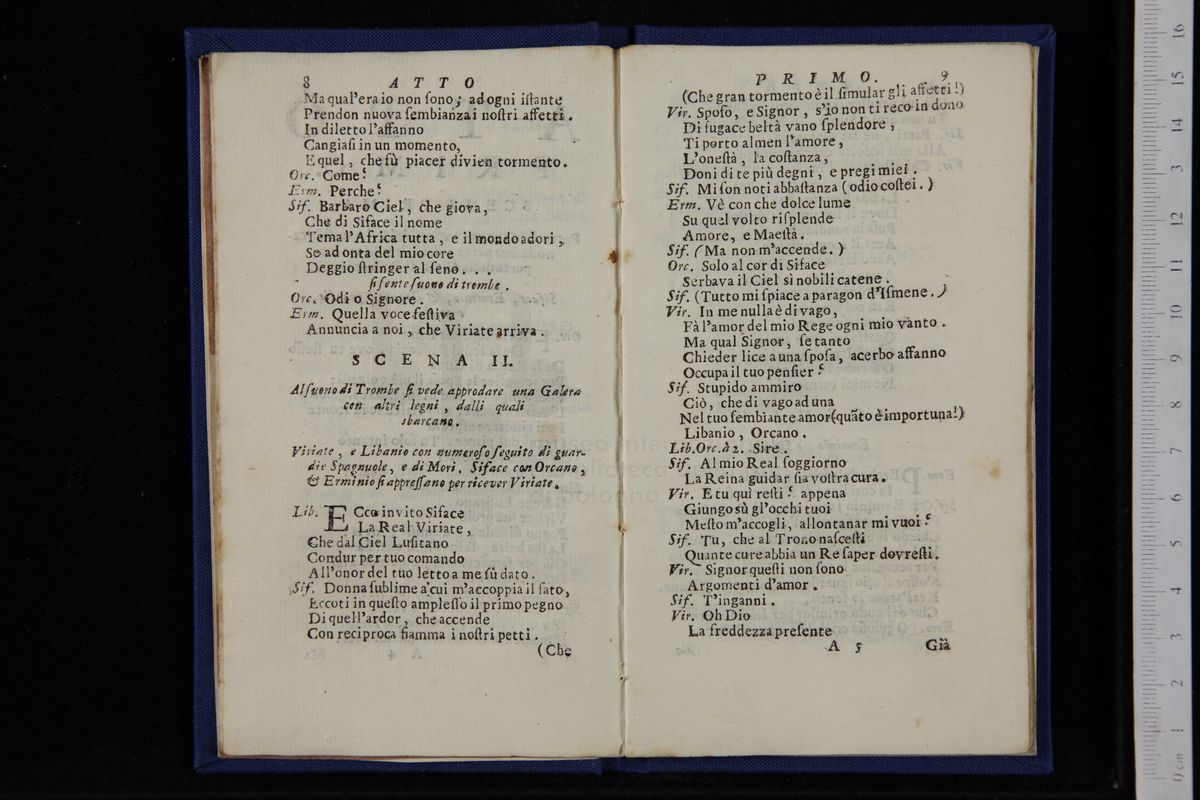 8 ATTO
Ma qual'era io non sono; ad ogni iſtante
Prendon nuova ſembianza i noſtri affetti.
In diletto l'affanno
Cangiaſi in un momento,
E quel, che fù piacer divien tormento.
Orc. Come?
Erm. Perche?
Sif. Barbaro Ciel, che giova,
Che di Siface il nome
Tema l'Africa tutta, e il mondo adori,
Se ad onta del mio core
Deggio ſtringer al ſeno...
ſi ſente ſuono di trombe.
Orc. Odi o Signore.
Erm. Quella voce feſtiva
Annuncia a noi, che Viriate arriva.
SCENA II.
Al ſuono di Trombe ſi vede approdare una Galera
con altri legni, dalli quali
sbarcano.
Viriate, e Libanio con numeroſo ſeguito di guar-
die Spagnuole, e di Mori. Siface con Orcano,
& Erminio ſi appreſſano per ricever Viriate.
Lib. ECco in vito Siface
La Real Viriate,
Che dal Ciel Luſitano
Condur per tuo comando
All'onor del tuo letto a me fù dato.
Sif. Donna ſublime a cui m'accoppia il fato,
Eccoti in queſto ampleſſo il primo pegno
Di quell'ardor, che accende
Con reciproca fiamma i noſtri petti.
(Che
PRIMO. 9
(Che gran tormento è il ſimular gli affetti!)
Vir. Spoſo, e Signor, s'io non ti reco in dono
Di fugace beltà vano ſplendore,
Ti porto almen l'amore,
L'oneſtà, la coſtanza,
Doni di te più degni, e pregi miei.
Sif. Mi ſon noti abbaſtanza (odio coſtei.)
Erm. Vè con che dolce lume
Su quel volto riſplende
Amore, e Maeſtà.
Sif. (Ma non m'accende.)
Orc. Solo al cor di Siface
Serbava il Ciel sì nobili catene.
Sif. (Tutto mi ſpiace a paragon d'Iſmene.)
Vir. In me nulla è di vago,
Fà l'amor del mio Rege ogni mio vanto.
Ma qual Signor, ſe tanto
Chieder lice a una ſpoſa, acerbo affanno
Occupa il tuo penſier?
Sif. Stupido ammiro
Ciò, che di vago ad una
Nel tuo ſembiante amor (quāto è importuna!)
Libanio, Orcano.
Lib.Orc.à 2. Sire.
Sif. Al mio Real ſoggiorno
La Reina guidar ſia voſtra cura.
Vir. E tu quì reſti? appena
Giungo sù gl'occhi tuoi
Meſto m'accogli, allontanar mi vuoi?
Sif. Tu, che al Trono naſceſti
Quante cure abbia un Re ſaper dovreſti.
Vir. Signor queſti non ſono
Argomenti d'amor.
Sif. T'inganni.
Vir. Oh Dio
La freddezza preſente
A 5 Già